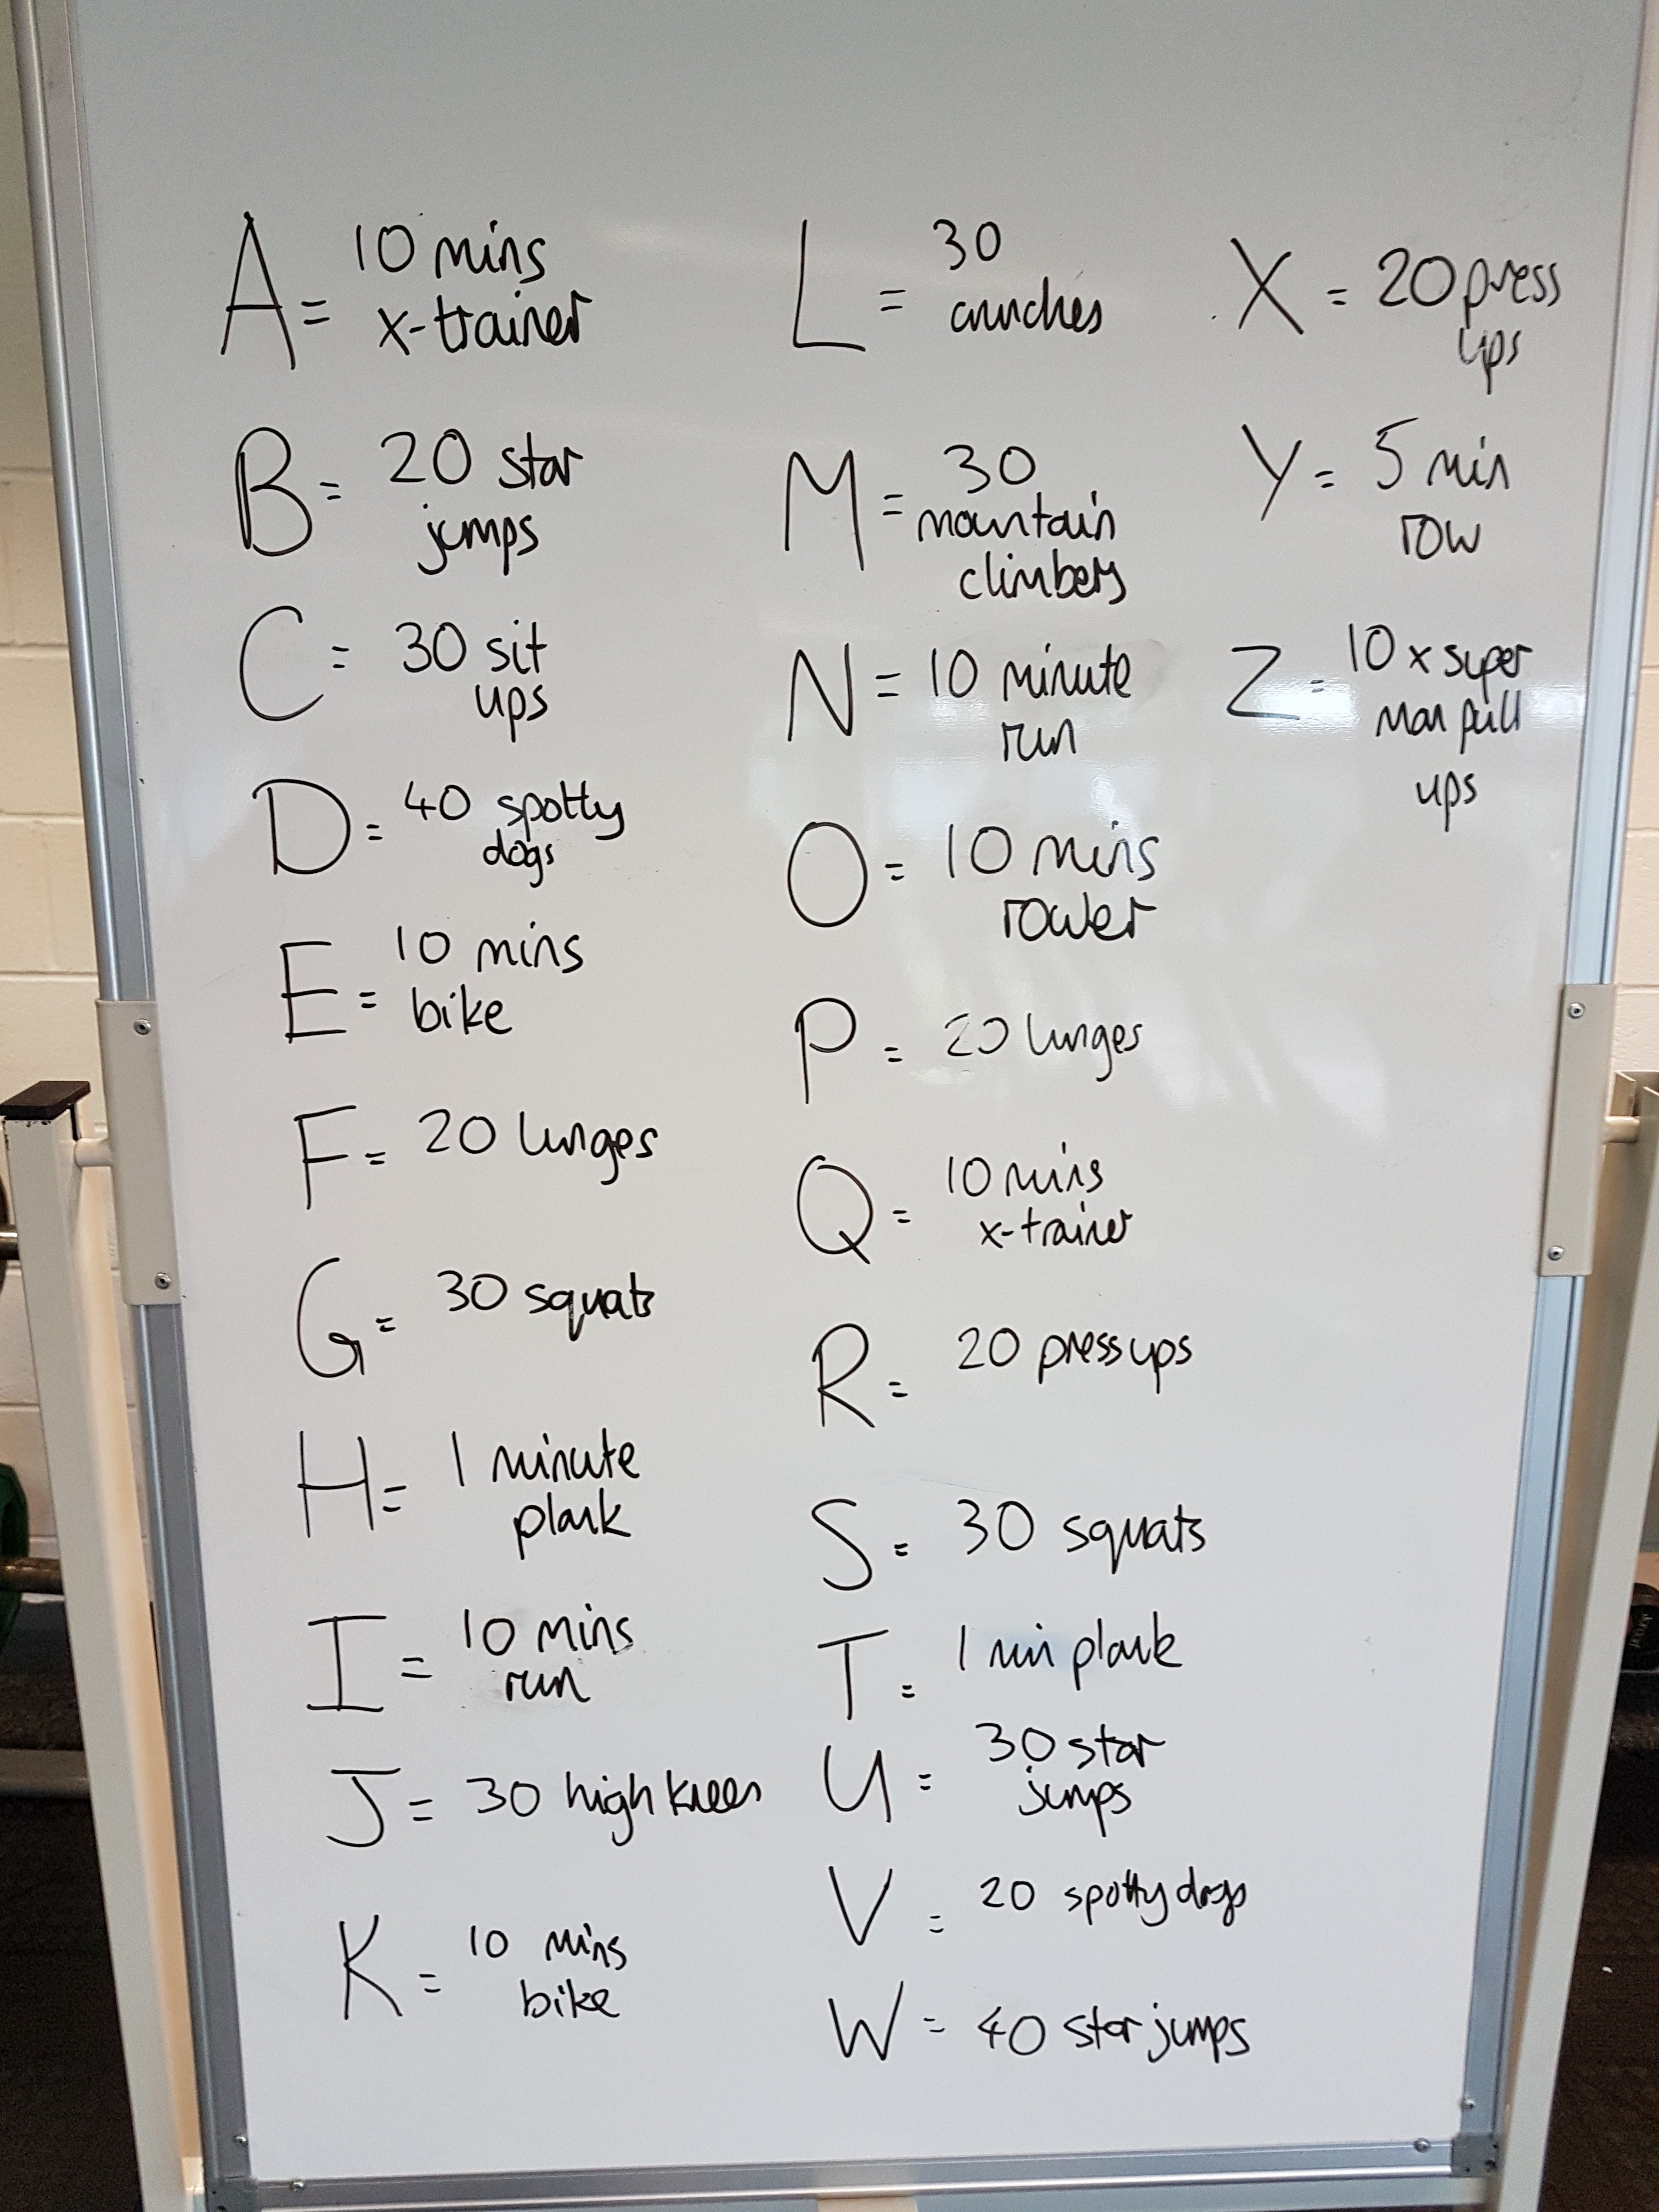 A = 10 mins
x-trainer
B = 20 star
jumps
C = 30 sit
ups
D = 40 spotty
dogs
E = 10 mins
bike
F = 20 lunges
G = 30 squats
H = 1 minute
plank
I = 10 mins
run
J = 30 high knees
K = 10 mins
bike
L = 30
crunches
M = 30
mountain
climbers
N = 10 minute
run
O = 10 mins
rower
P = 20 lunges
Q = 10 mins
x-trainer
R = 20 press ups
S = 30 squats
T = 1 min plank
U = 30 star
jumps
V = 20 spotty dogs
W = 40 star jumps
X = 20 press
ups
Y = 5 min
row
Z = 10 x super
man pull
ups